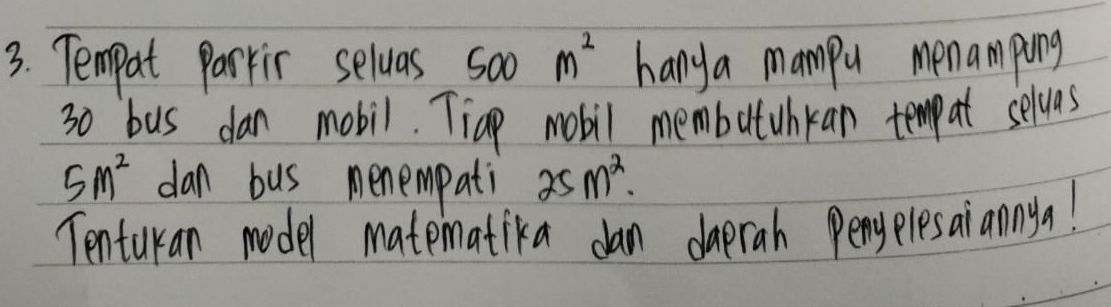 3. Tempat Parkir seluas 500 m² hanya mampu menampung
30 bus dan mobil. Tiap mobil membutuhkan tempat seluas
5m² dan bus menempati 25 m².
Tentukan model matematika dan daerah Penyelesaiannya!